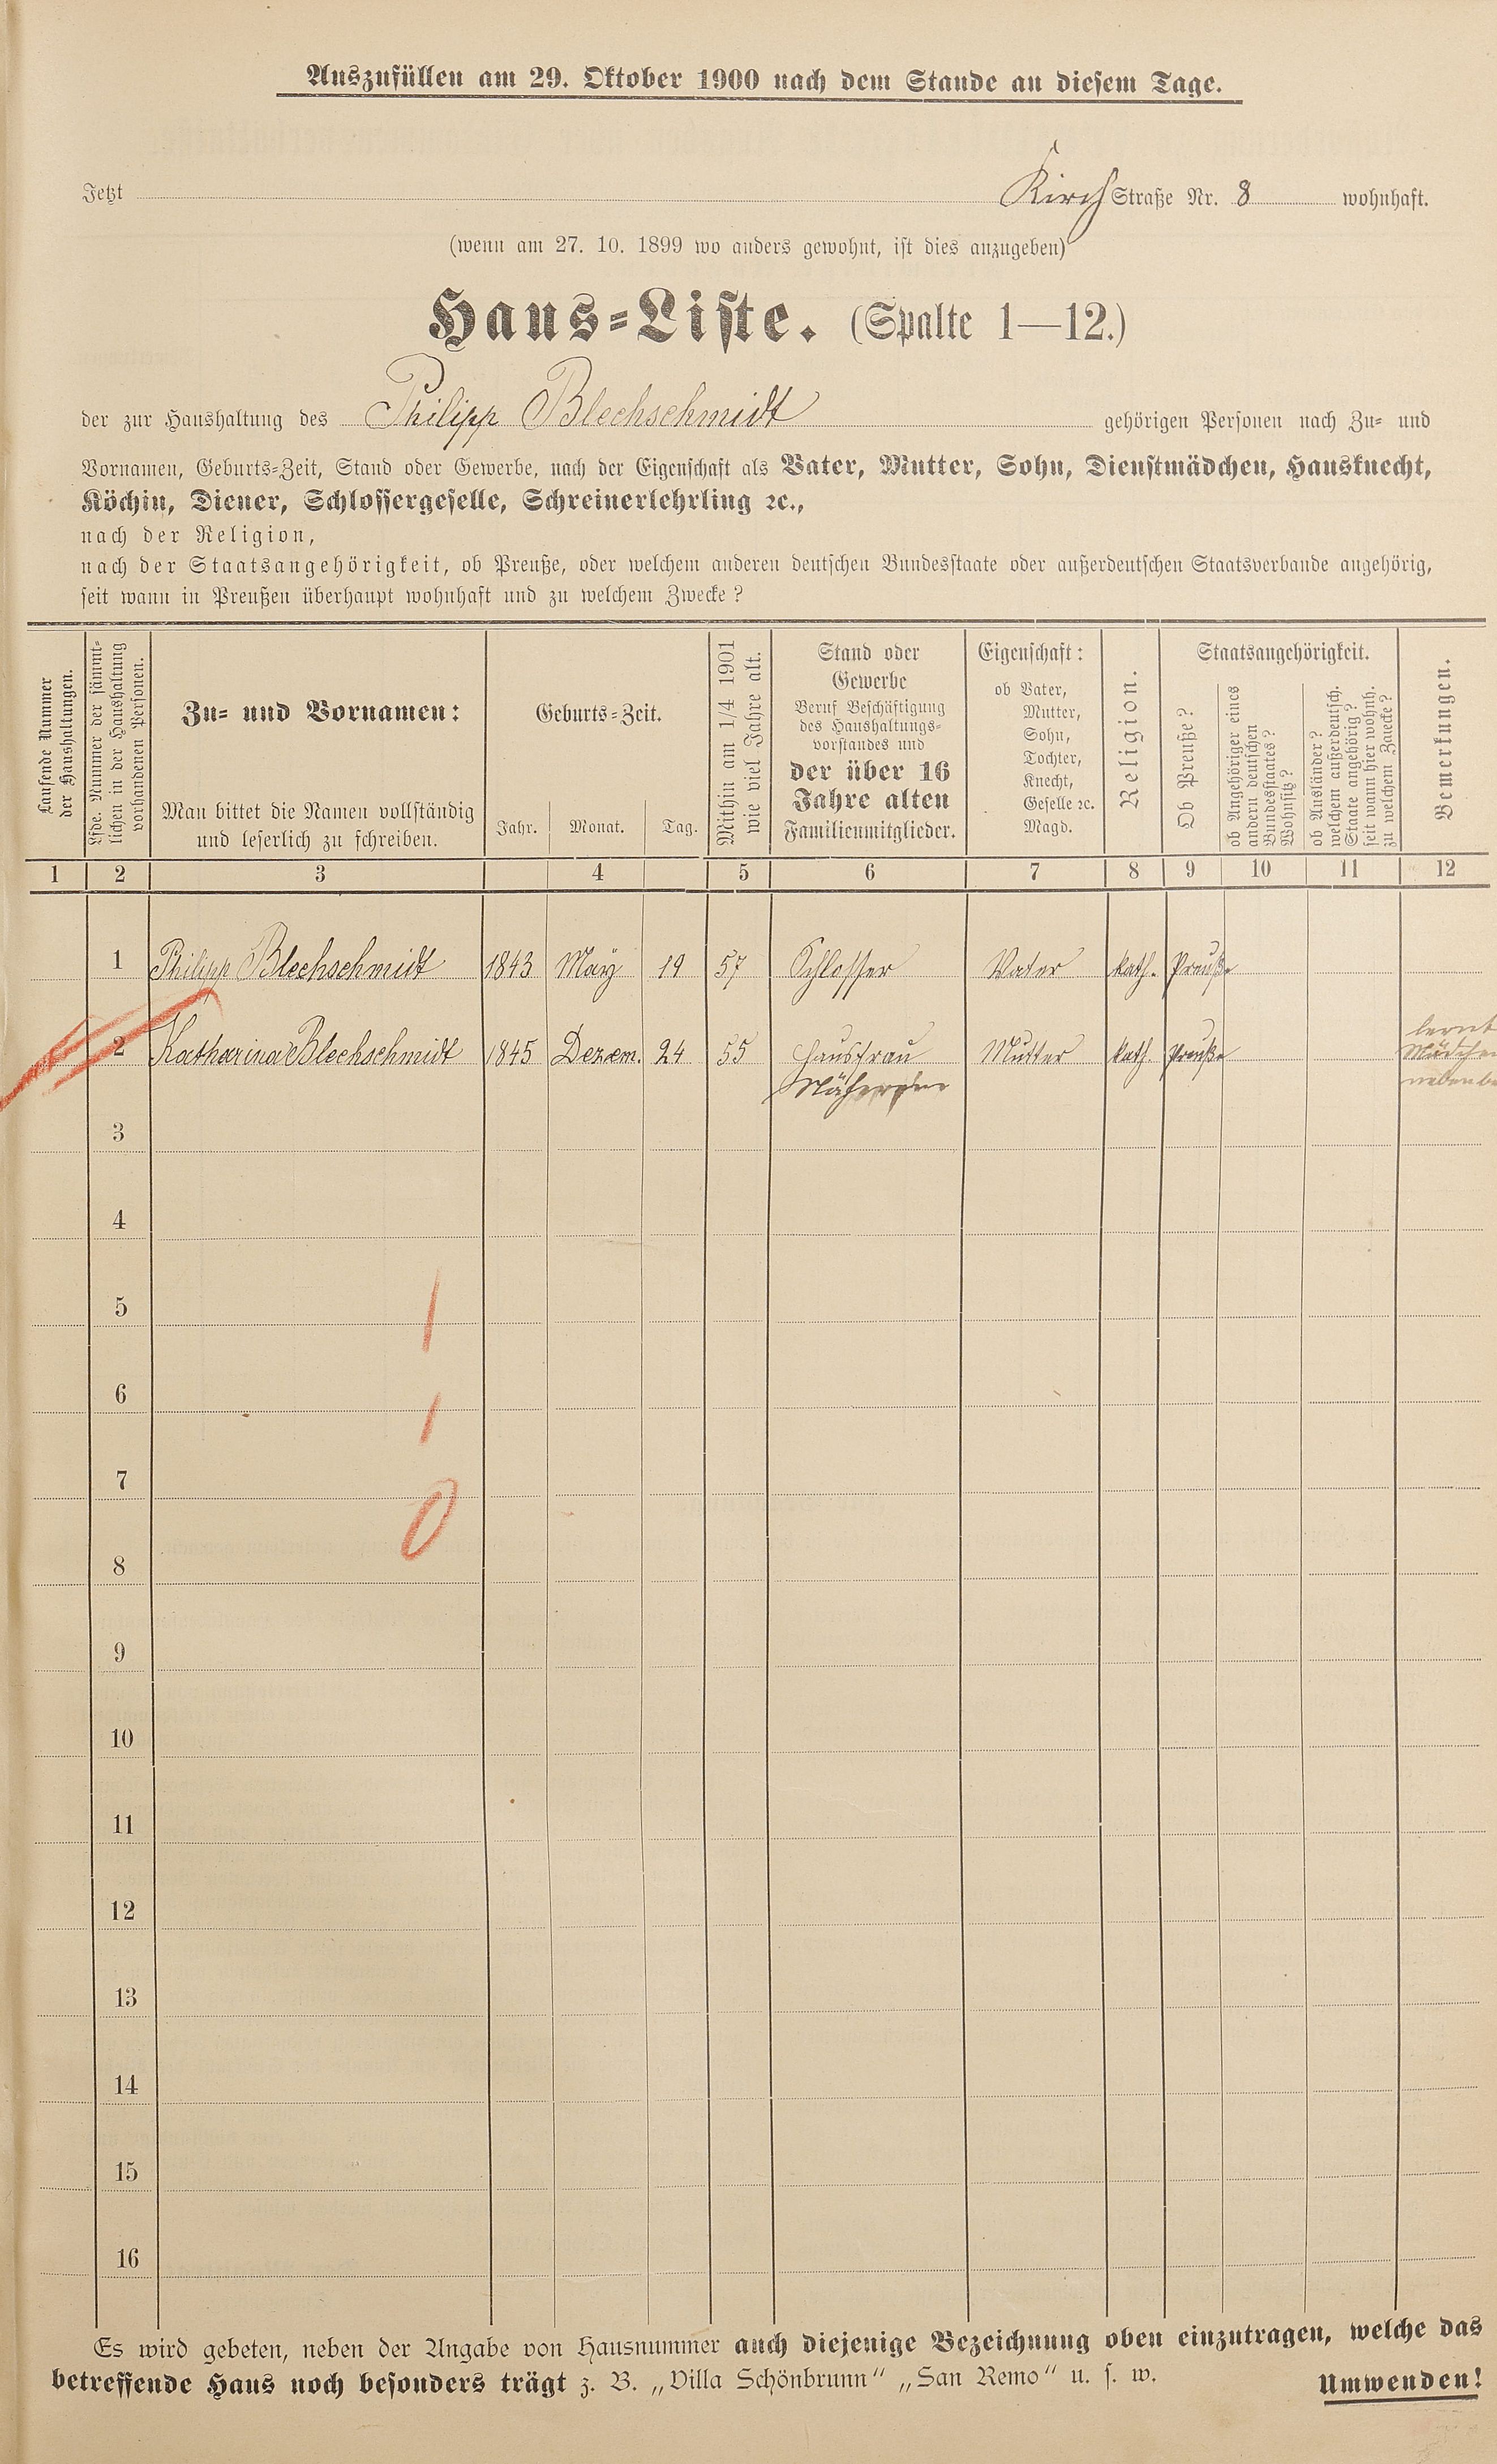 Auszufüllen am 29. Oktober 1900 nach dem Stande an diesem Tage.
Jetzt Kirch Straße Nr. 8 wohnhaft.
(wenn am 27. 10. 1899 wo anders gewohnt, ist dies anzugeben)
Haus-Liste. (Spalte 1—12.)
der zur Haushaltung des Philipp Blechschmidt gehörigen Personen nach Zu- und
Vornamen, Geburts-Zeit, Stand oder Gewerbe, nach der Eigenschaft als Vater, Mutter, Sohn, Dienstmädchen, Hausknecht,
Köchin, Diener, Schlossergeselle, Schreinerlehrling ꝛc.,
nach der Religion,
nach der Staatsangehörigkeit, ob Preuße, oder welchem anderen deutschen Bundesstaate oder außerdeutschen Staatsverbande angehörig,
seit wann in Preußen überhaupt wohnhaft und zu welchem Zwecke?
Laufende Nummer
der Haushaltungen.
Lfde. Nummer der sämmt-
lichen in der Haushaltung
vorhandenen Personen.
Zu- und Vornamen:
Man bittet die Namen vollständig
und leserlich zu schreiben.
Geburts-Zeit.
Jahr. Monat. Tag.
Mithin am 1/4 1901
wie viel Jahre alt.
Stand oder
Gewerbe
Beruf Beschäftigung
des Haushaltungs-
vorstandes und
der über 16
Jahre alten
Familienmitglieder.
Eigenschaft:
ob Vater,
Mutter,
Sohn,
Tochter,
Knecht,
Geselle ꝛc.
Magd.
Religion.
Staatsangehörigkeit.
Ob Preuße?
ob Angehöriger eines
andern deutschen
Bundesstaates?
Wohnsitz?
ob Ausländer?
welchem außerdeutsch.
Staate angehörig?
seit wann hier wohnh.
zu welchem Zwecke?
Bemerkungen.
1 2 3 4 5 6 7 8 9 10 11 12
1 Philipp Blechschmidt 1843 May 19 57 Schlosser Vater kath. Preuße
2 Katharina Blechschmidt 1845 Dezem. 24 55 Hausfrau Mutter kath. Preuße
lernt
3
4
5
6
7
8
9
10
11
12
13
14
15
16
Es wird gebeten, neben der Angabe von Hausnummer auch diejenige Bezeichnung oben einzutragen, welche das
betreffende Haus noch besonders trägt z. B. „Villa Schönbrunn“ „San Remo“ u. s. w. Umwenden!